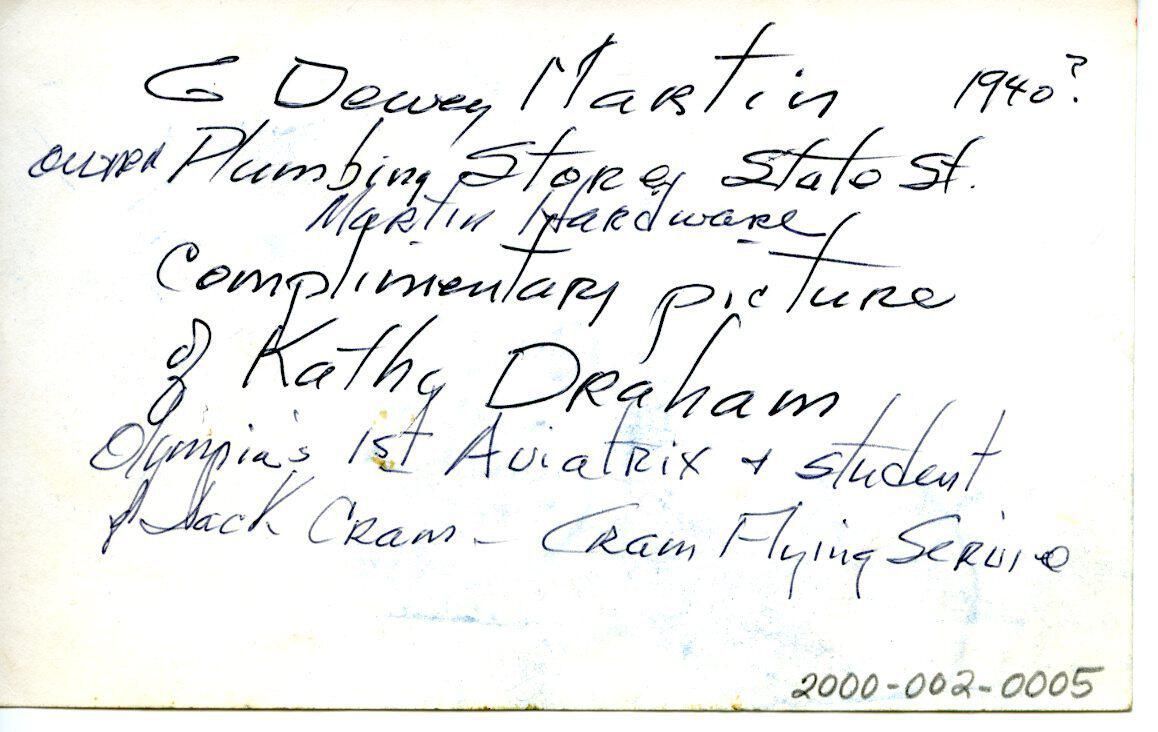 G Dewey Martin 1940?
owner Plumbing Store State St.
Martin Hardware
Complimentary picture
of Kathy Draham
Olympia's 1st Aviatrix + student
of Jack Cram - Cram Flying Service
2000-002-0005